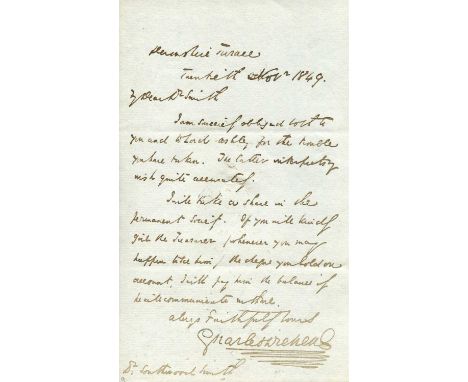 Devonshire Terrace
Twentieth Novr 1849.
My Dear Dr Smith
I am sincerely obliged both to
you and to Lord Ashley for the trouble
you have taken. The latter interprets my
wish quite accurately.
I will take a share in the
permanent Society. If you will kindly
give the Treasurer (whenever you may
happen to see him) the cheque you hold on
account, I will pay him the balance if
he will communicate with me.
always Faithfully Yours
Charles Dickens
Dr Southwood Smith